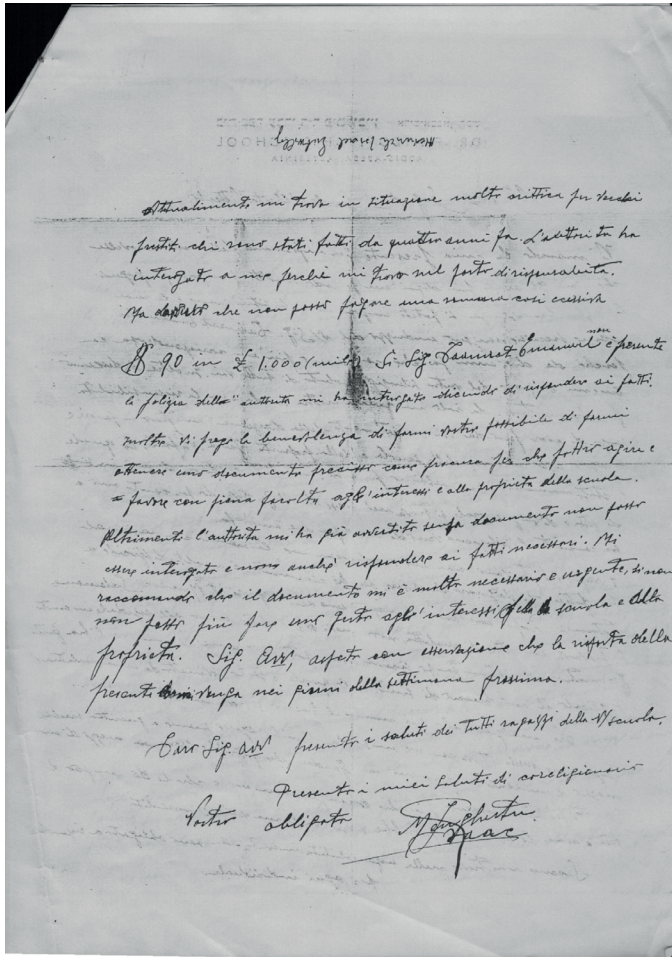 Attualmente mi trovo in situazione molto critica per vecchi
prestiti chi sono stati fatti da quattro anni fa. L'autorita ha
interogato a me perchè mi trovo nel posto di risponsabilita.
Ma che non posso pagare una somma cosi ecessiva
90 in £ 1.000 (mile) Si Sig. Taamrat Emanuel non è presente
la polizia della autorita mi ha interogato dicendo di rispondere ai fatti.
molto vi prego la benevolenza di farmi vostro possibile di farmi
ottenere uno documento precisso come procura per che possio agire e
= favore con piena facolta agli interessi e alla proprieta della scuola.
Altrimento l'autorita mi ha già avvertito senza documento non posso
essere interogato e nono anche rispondere ai fatti necessari. Mi
raccomando che il documento mi è molto necessario e urgente, si non
non posso più fare uno gesto agli interessi della scuola e della
proprieta. Sig. Avv, aspeto con osservazione che la risposta della
presente venga nei giorni della settimana prossima.
Caro Sig. avv presento i saluti dei tutti ragazzi della Vs scuola.
Presento i miei saluti di coreligionario
Vostro obligato